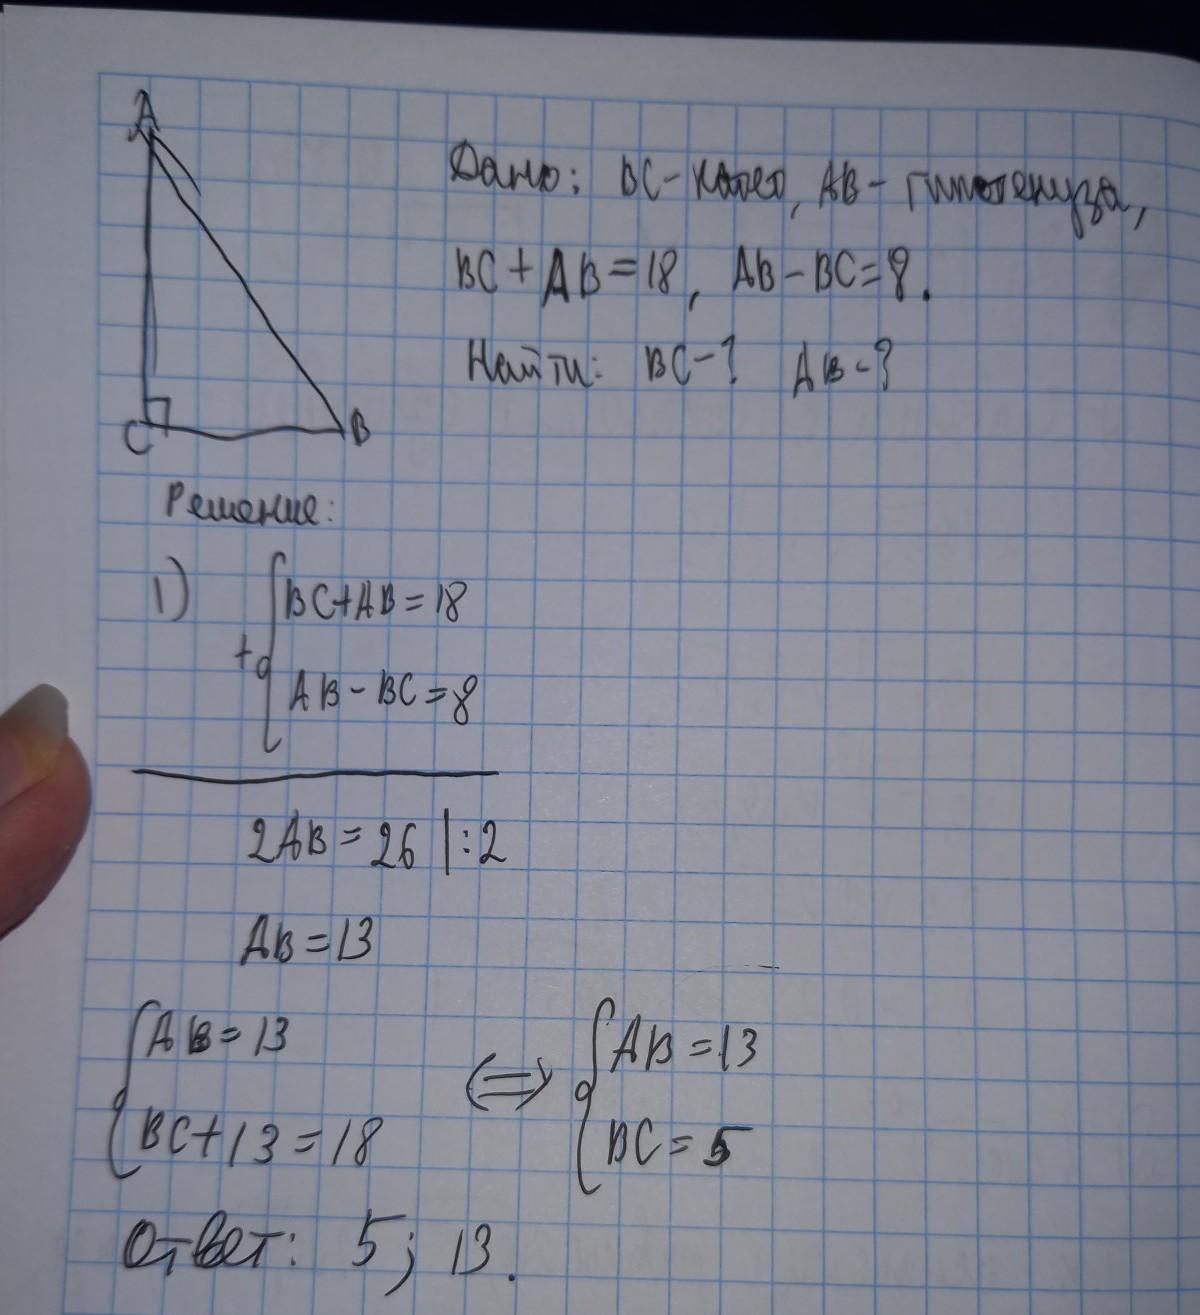 A
Дано: BC - катет, AB - гипотенуза,
BC + AB = 18, AB - BC = 8.
Найти: BC - ? AB - ?
C B
Решение:
1) { BC + AB = 18
+ { AB - BC = 8
2AB = 26 | : 2
AB = 13
{ AB = 13 <=> { AB = 13
{ BC + 13 = 18 { BC = 5
Ответ: 5; 13.